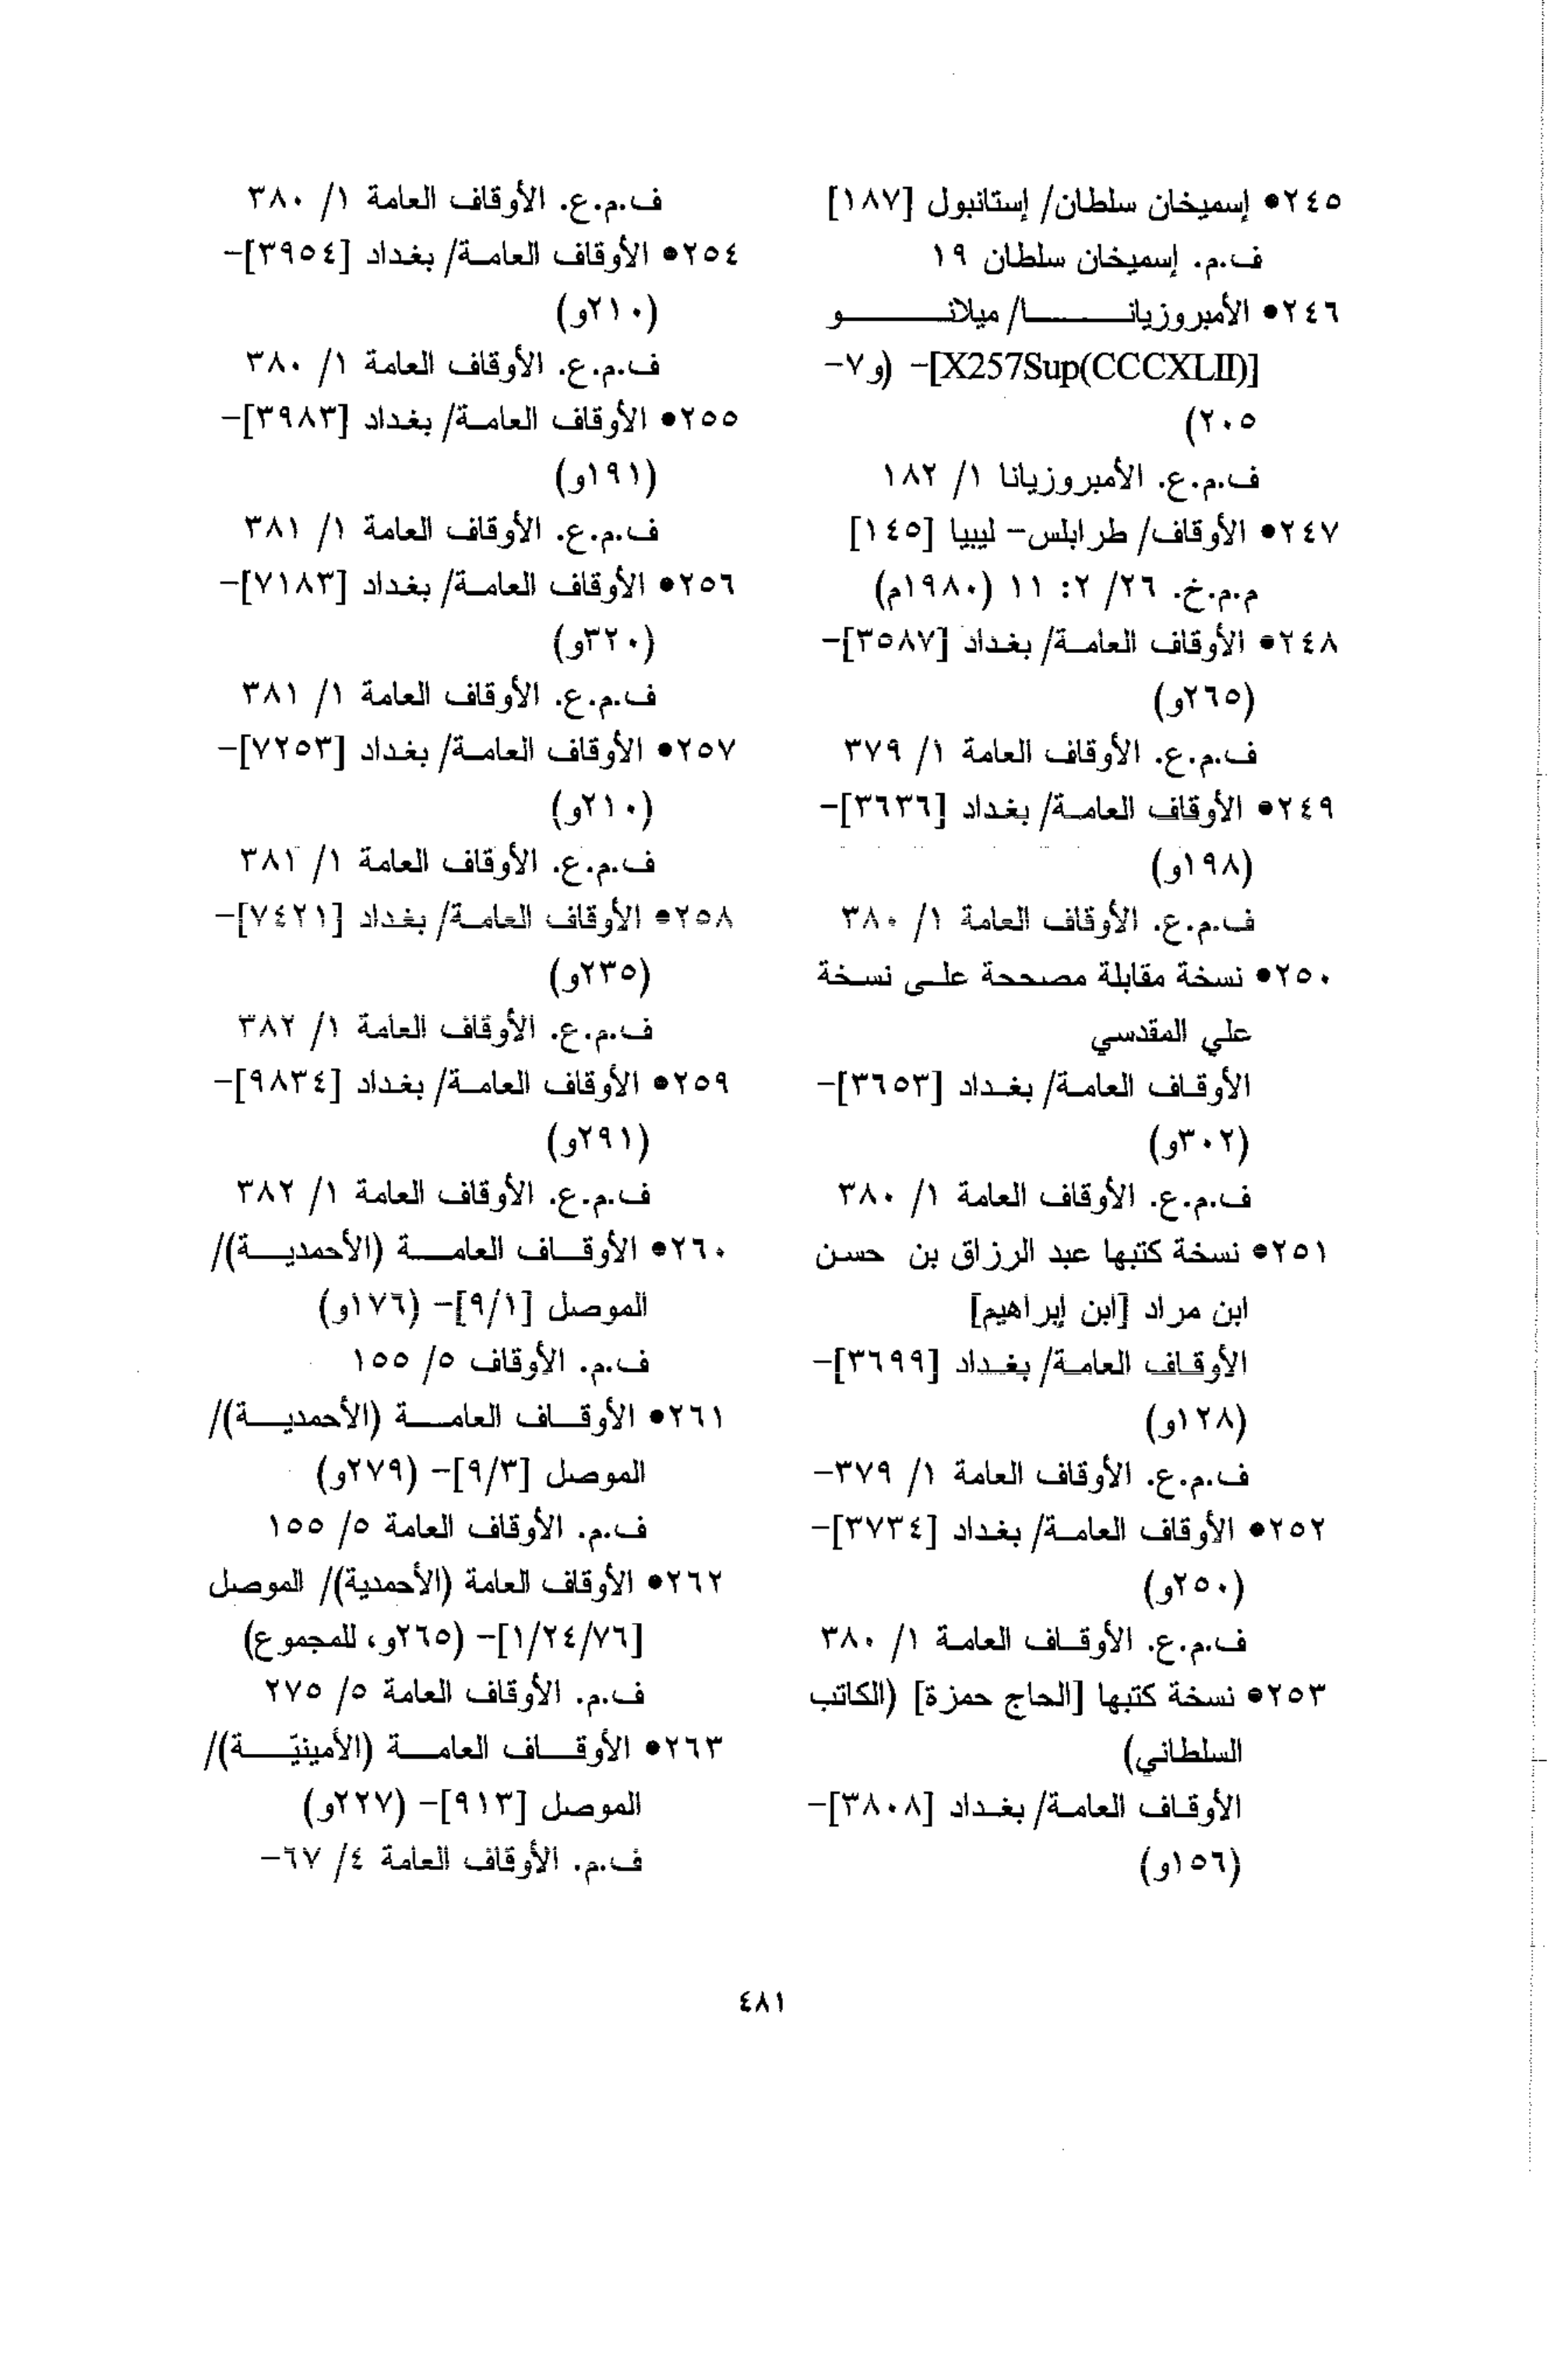 ٢٤٥● إسميخان سلطان/ إستانبول [١٨٧]
ف.م. إسميخان سلطان ١٩
٢٤٦● الأمبروزيانـــا/ ميلانـــو
[X257Sup(CCCXLII)]- (و٧-
٢٠٥)
ف.م.ع. الأمبروزيانا ١/ ١٨٢
٢٤٧● الأوقاف/ طرابلس- ليبيا [١٤٥]
م.م.خ. ٢٦/ ٢: ١١ (١٩٨٠م)
٢٤٨● الأوقاف العامـة/ بغداد [٣٥٨٧]-
(٢٦٥و)
ف.م.ع. الأوقاف العامة ١/ ٣٧٩
٢٤٩● الأوقاف العامـة/ بغداد [٣٦٣٦]-
(١٩٨و)
ف.م.ع. الأوقاف العامة ١/ ٣٨٠
٢٥٠● نسخة مقابلة مصححة علـى نسـخة
علي المقدسي
الأوقـاف العامـة/ بغـداد [٣٦٥٣]-
(٣٠٢و)
ف.م.ع. الأوقاف العامة ١/ ٣٨٠
٢٥١● نسخة كتبها عبد الرزاق بن حسـن
ابن مراد [ابن إبراهيم]
الأوقـاف العامـة/ بغـداد [٣٦٩٩]-
(١٢٨و)
ف.م.ع. الأوقاف العامة ١/ ٣٧٩-
٢٥٢● الأوقاف العامـة/ بغداد [٣٧٣٤]-
(٢٥٠و)
ف.م.ع. الأوقـاف العامـة ١/ ٣٨٠
٢٥٣● نسخة كتبها [الحاج حمزة] (الكاتب
السلطاني)
الأوقـاف العامـة/ بغـداد [٣٨٠٨]-
(١٥٦و)
ف.م.ع. الأوقاف العامة ١/ ٣٨٠
٢٥٤● الأوقاف العامـة/ بغداد [٣٩٥٤]-
(٢١٠و)
ف.م.ع. الأوقاف العامة ١/ ٣٨٠
٢٥٥● الأوقاف العامـة/ بغداد [٣٩٨٣]-
(١٩١و)
ف.م.ع. الأوقاف العامة ١/ ٣٨١
٢٥٦● الأوقاف العامـة/ بغداد [٧١٨٣]-
(٣٢٠و)
ف.م.ع. الأوقاف العامة ١/ ٣٨١
٢٥٧● الأوقاف العامـة/ بغداد [٧٢٥٣]-
(٢١٠و)
ف.م.ع. الأوقاف العامة ١/ ٣٨١
٢٥٨● الأوقاف العامـة/ بغداد [٧٤٢١]-
(٢٣٥و)
ف.م.ع. الأوقاف العامة ١/ ٣٨٢
٢٥٩● الأوقاف العامـة/ بغداد [٩٨٣٤]-
(٢٩١و)
ف.م.ع. الأوقاف العامة ١/ ٣٨٢
٢٦٠● الأوقـاف العامـة (الأحمديـة)/
الموصل [٩/١]- (١٧٦و)
ف.م. الأوقاف ٥/ ١٥٥
٢٦١● الأوقـاف العامـة (الأحمديـة)/
الموصل [٩/٣]- (٢٧٩و)
ف.م. الأوقاف العامة ٥/ ١٥٥
٢٦٢● الأوقاف العامة (الأحمدية)/ الموصل
[١/٢٤/٧٦]- (٢٦٥و، للمجموع)
ف.م. الأوقاف العامة ٥/ ٢٧٥
٢٦٣● الأوقـاف العامـة (الأمينيّـة)/
الموصل [٩١٣]- (٢٢٧و)
ف.م. الأوقاف العامة ٤/ ٦٧-
٤٨١